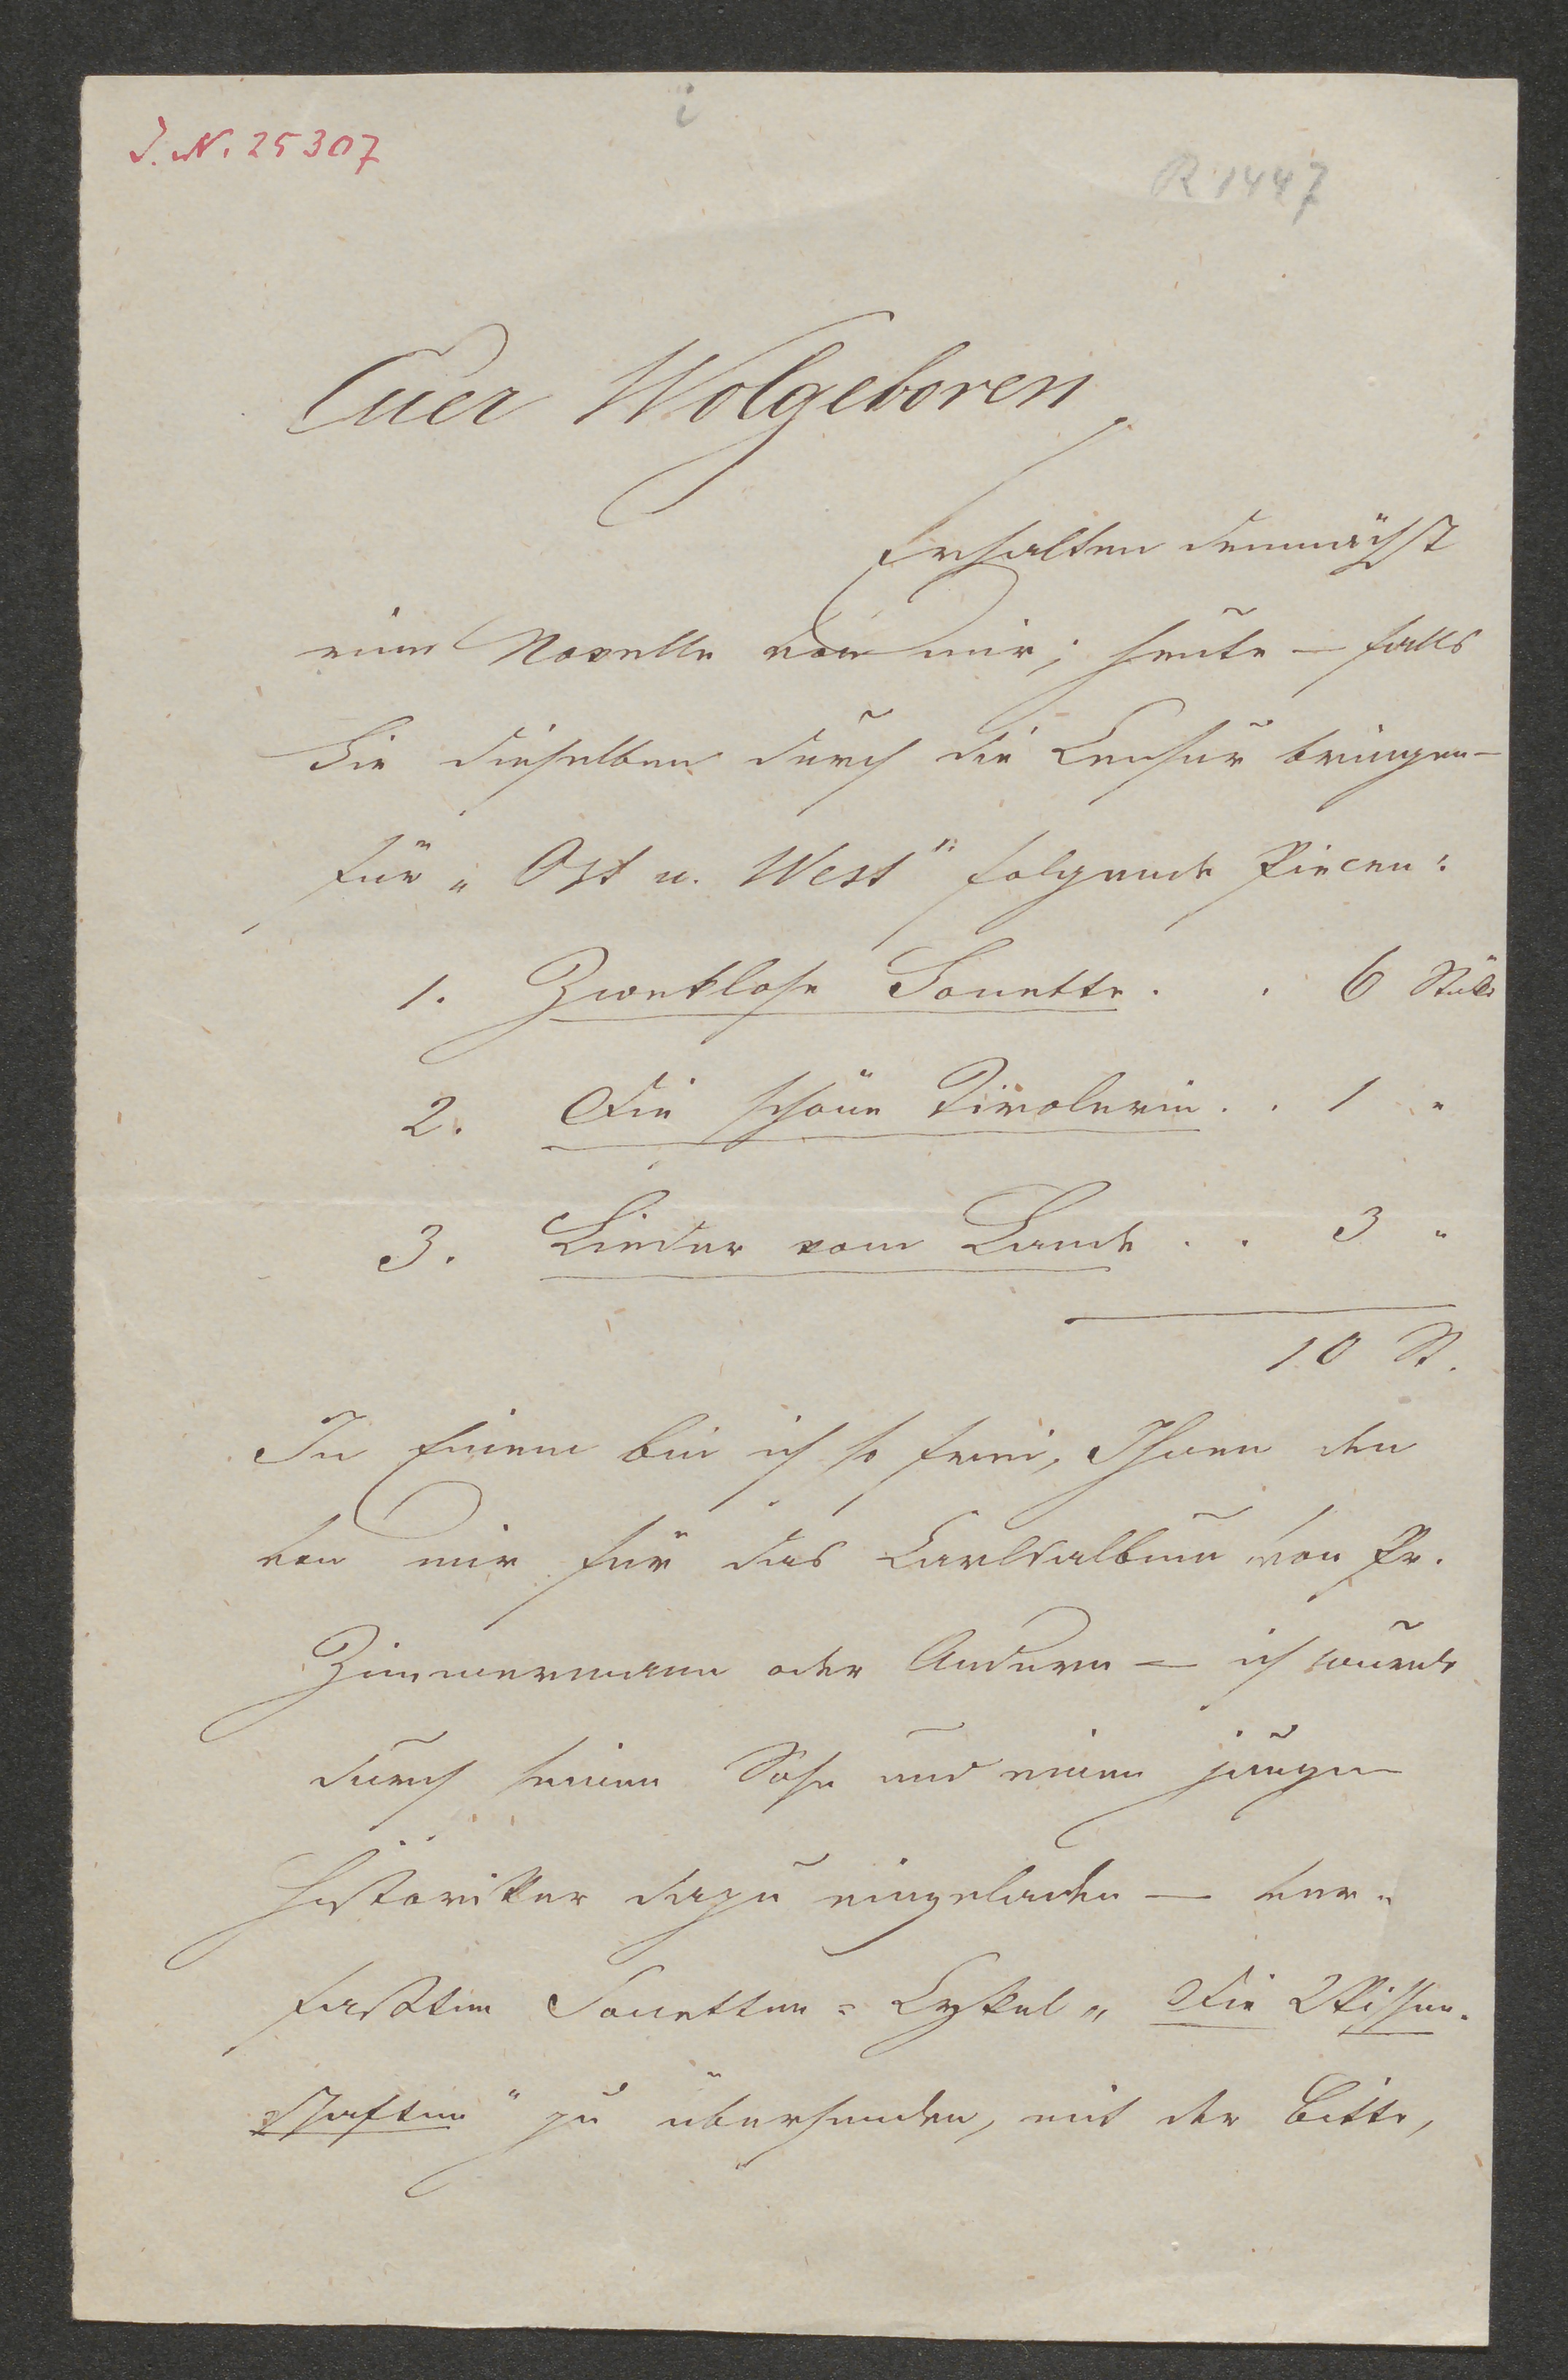 J. N. 25307
R 1447
Euer Wolgeboren
Erhalten demnächst
eine Novelle von mir; heute — falls
Sie dieselben durch die Censur bringen —
für „Ost u. West" folgende Piecen:
1. Zweklose Sonette . . 6 Stük
2. Die schöne Tirolerin . . 1 "
3. Lieder vom Lande . . 3 "
10 St.
In Einem bin ich so frei, Ihnen den
von mir für das Carlsalbum von Pr.
Zimmermann oder Andern — ich wurde
durch seinen Sohn und einen jungen
Historiker dazu eingeladen — ver-
faßten Sonetten-Cykel „Die Wissen-
schaften" zu übersenden, mit der Bitte,